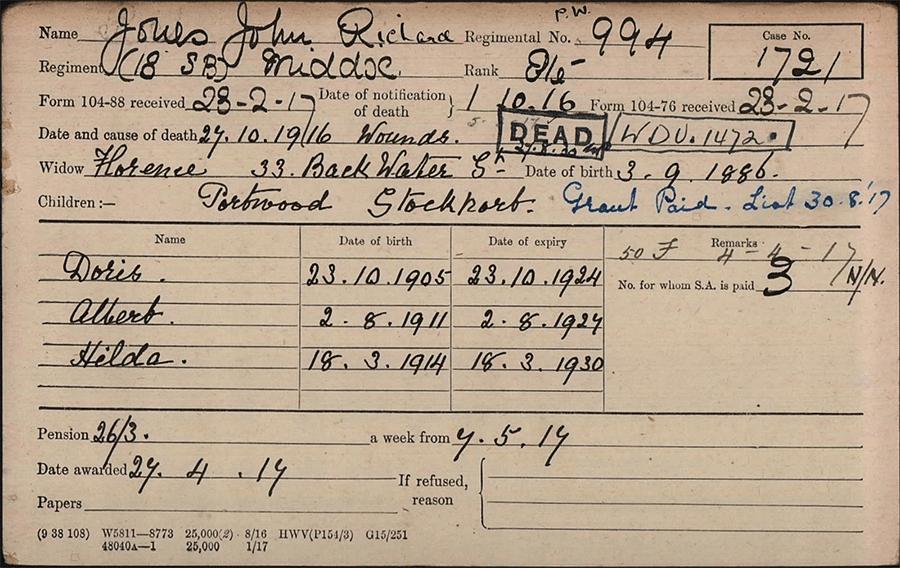 Name Jones John Richard Regimental No. P.W. 994 Case No.
1721
Regiment (18 SB) Middx. Rank Pte
Form 104-88 received 23-2-17 Date of notification of death } 1 10.16 Form 104-76 received 23-2-17
Date and cause of death 27.10.1916 Wounds. DEAD WDU.1472.
Widow Florence 33. Back Water St Date of birth 3.9.1886.
Children:— Portwood Stockport. Grant Paid. List 30.8.'17
Name Date of birth Date of expiry Remarks
50 F 4-4-17
Doris. 23.10.1905 23.10.1924 No. for whom S.A. is paid 3 N/N.
Albert. 2.8.1911 2.8.1927
Hilda. 18.3.1914 18.3.1930
Pension 26/3. a week from 7.5.17
Date awarded 27.4.17 If refused,
Papers reason
(9 38 108) W5811—8773 25,000(2) 8/16 HWV(P154/3) G15/251
48040A—1 25,000 1/17